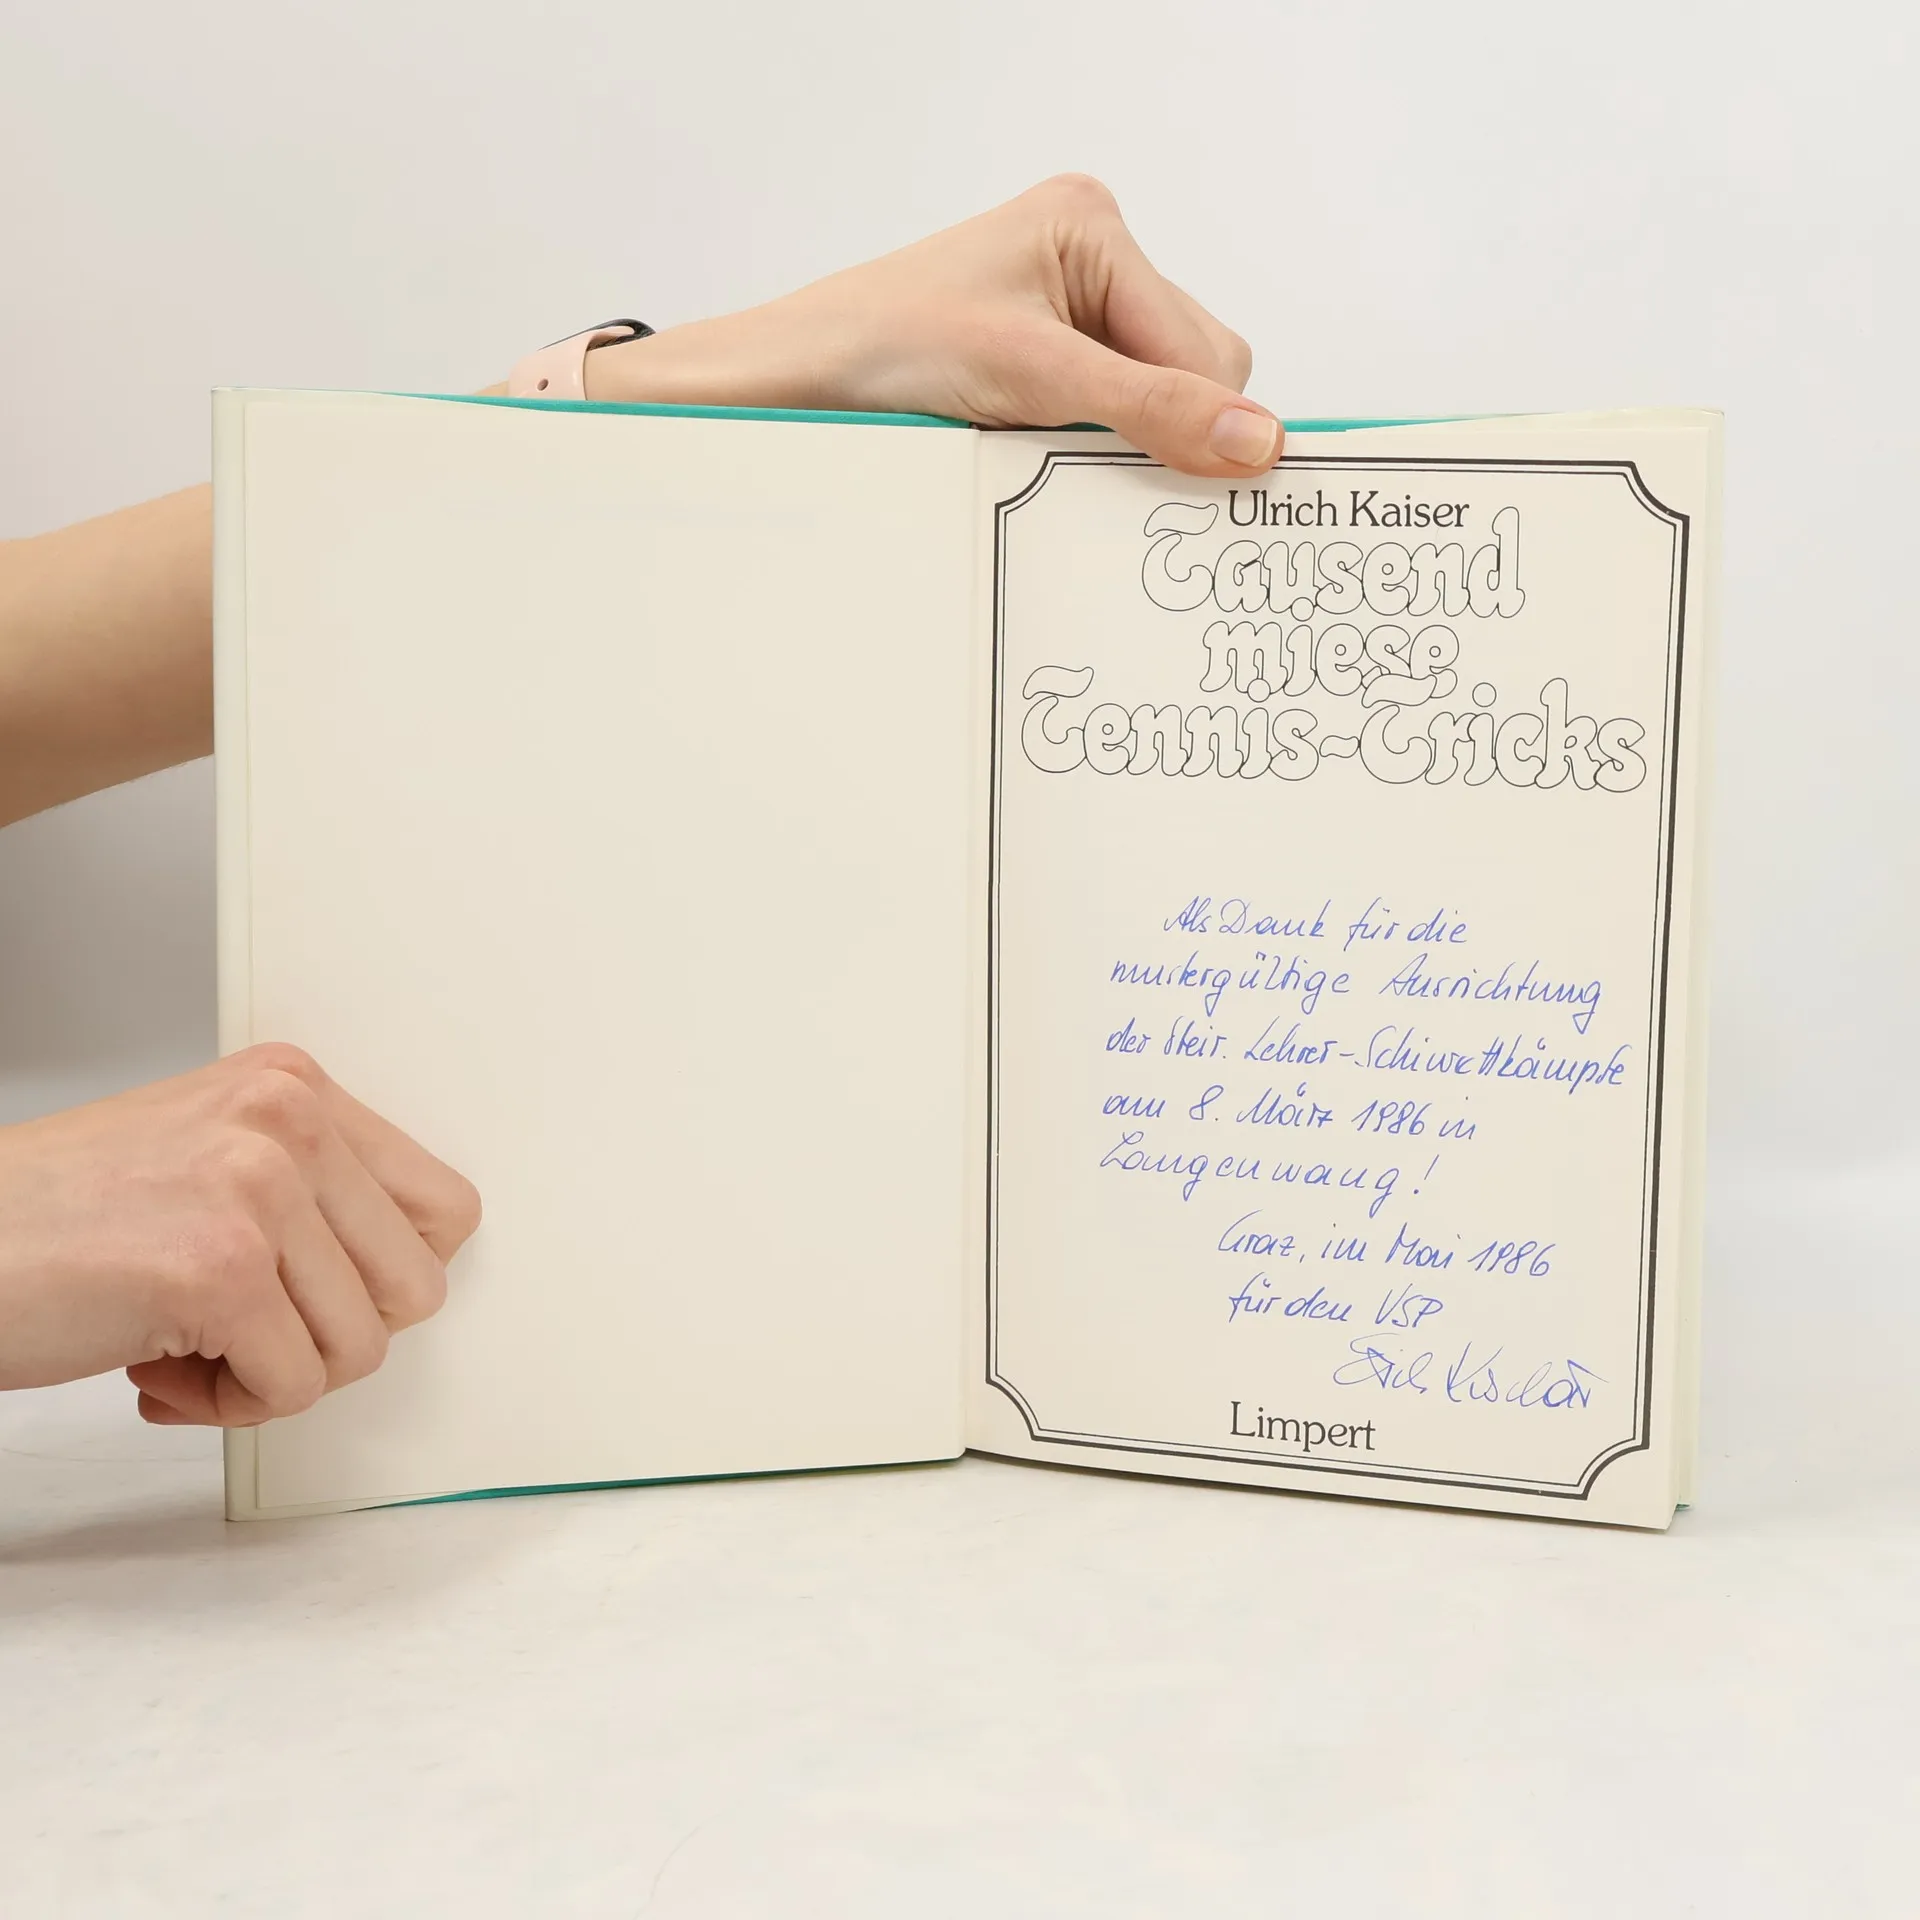 Ulrich Kaiser
Tausend
miese
Tennis-Tricks
Als Dank für die
mustergültige Ausrichtung
der Steir. Lehrer-Schiwettkämpfe
am 8. März 1986 in
Langenwang!
Graz, im Mai 1986
für den VSP
Erich
Limpert